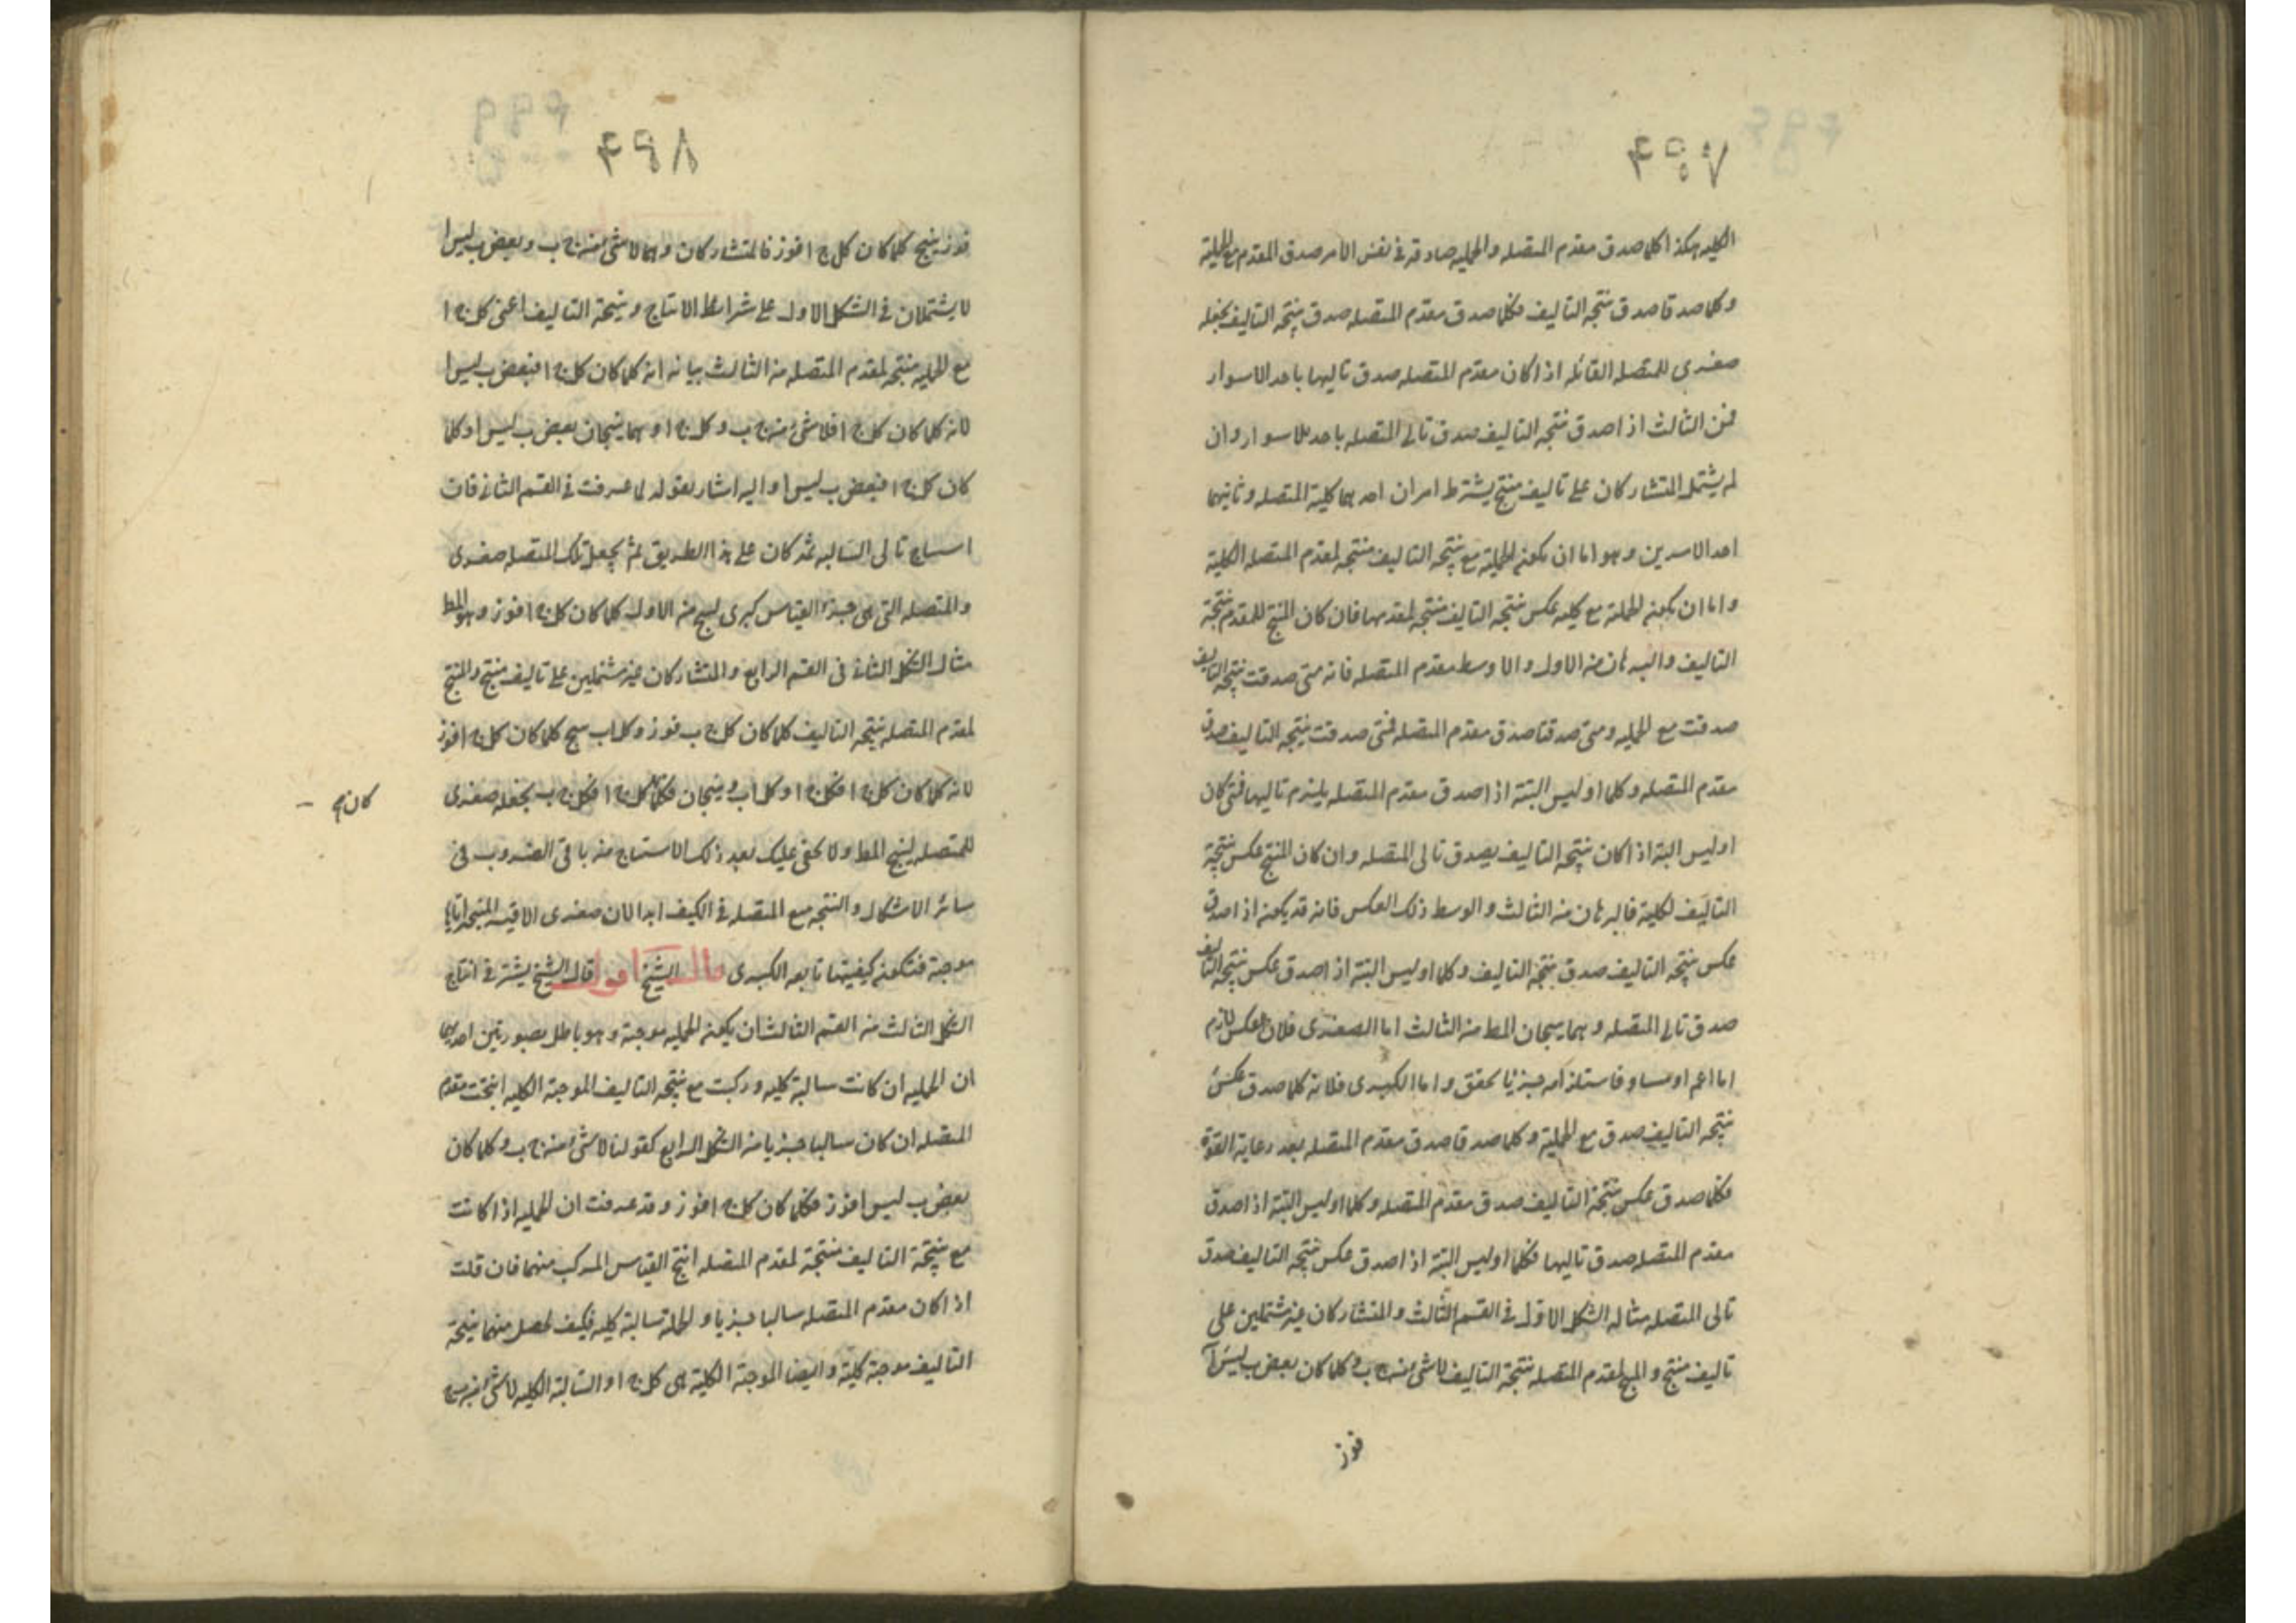 ۴۹۷
الكليه هكذا كلما صدق مقدم المتصله والحمليه صادقه في نفس الامر صدق المقدم مع الحملية
وكلما صدقا صدق نتيجة التاليف فكلما صدق مقدم المتصله صدق نتيجة التاليف نجعله
صغرى للمتصله القائله اذا كان مقدم المتصله صدق تاليها باحد الاسوار
فمن الثالث اذا صدق نتيجة التاليف صدق تالى المتصله باحد الاسوار وان
لم يشتمل المتشاركان على تاليف منتج يشترط امران احدهما كلية المتصله وثانيهما
احد الامرين وهو اما ان يكون الحملية مع نتيجة التاليف منتجه لمقدم المتصله الكلية
واما ان يكون الحملية مع كليه عكس نتيجه التاليف منتجه لمقدمها فان كان المنتج للمقدم نتيجة
التاليف والبرهان من الاول والاوسط مقدم المتصله فانه متى صدقت نتيجة التاليف
صدقت مع الحمليه ومتى صدقتا صدق مقدم المتصله فمتى صدقت نتيجه التاليف صدق
مقدم المتصله وكلما او ليس البتة اذا صدق مقدم المتصله يلزم تاليها فمتى كان
او ليس البتة اذا كان نتيجة التاليف يصدق تالى المتصله وان كان المنتج عكس نتيجة
التاليف الكلية فالبرهان من الثالث والوسط ذلك العكس فانه قد يكون اذا صدق
عكس نتيجه التاليف صدق نتيجة التاليف وكلما او ليس البتة اذا صدق عكس نتيجه التاليف
صدق تالى المتصله وهما ينتجان المط من الثالث اما الصغرى فلان العكس لازم
اما اعم او مساو فاستلزامه جزئيا محقق واما الكبرى فلانه كلما صدق عكس
نتيجه التاليف صدق مع الحملية وكلما صدقا صدق مقدم المتصله بعد رعاية القوة
فكلما صدق عكس نتيجة التاليف صدق مقدم المتصله وكلما او ليس البتة اذا صدق
مقدم المتصله صدق تاليها فكلما او ليس البتة اذا صدق عكس نتيجه التاليف صدق
تالى المتصله مثاله الشكل الاول في القسم الثالث والمتشاركان غير مشتملين على
تاليف منتج والمنتج لمقدم المتصله نتيجة التاليف لا شئ من ج ب وكلما كان بعض ب ليس آ
فوز
۴۹۸
فوز ينتج كلما كان كل ج ا فوز فالمتشاركان وهما لا شئ من ج ب وبعض ب ليس ا
لا يشتملان في الشكل الاول على شرائط الانتاج ونتيجة التاليف اعنى كل ج ا
مع الحمليه منتجه لمقدم المتصله من الثالث بيانه انه كلما كان كل ج ا فبعض ب ليس ا
لانه كلما كان كل ج ا فلا شئ من ج ب وكل ج ا وهما ينتجان بعض ب ليس ا وكلما
كان كل ج ا فبعض ب ليس ا واليه اشار بقوله لما عرفت في القسم الثانى فان
استنتاج تالى السالبه ثمه كان على هذا الطريق ثم يجعل تلك المتصله صغرى
والمتصله التى هى جزء القياس كبرى لينتج من الاول كلما كان كل ج ا فوز وهو المط
مثال الشكل الثانى فى القسم الرابع والمتشاركان غير مشتملين على تاليف منتج والمنتج
لمقدم المتصله نتيجه التاليف كلما كان كل ج ب فوز وكل اب ينتج كلما كان كل ج ا فوز
لانه كلما كان كل ج ا فكل ج ا وكل اب وينتجان فكلما كل ج ا فكل ج ب نجعله صغرى
كان صح
للمتصله لينتج المط ولا يخفى عليك بعد ذلك الاستنتاج من باقى الضروب فى
سائر الاشكال والنتيجه تتبع المتصله في الكيف ابدا لان صغرى الاقيسه المنتجه اياها
موجبة فتكون كيفيتها تابعه الكبرى قال الشيخ اقول قال الشيخ يشترط في انتاج
الشكل الثالث من القسم الثالث ان يكون الحمليه موجبة وهو باطل بصورتين احديهما
ان الحمليه ان كانت سالبة كليه وركبت مع نتيجه التاليف الموجبة الكليه انتجت مقدم
المتصله ان كان سالبا جزئيا من الشكل الرابع كقولنا لا شئ من ج ب وكلما كان
بعض ب ليس ا فوز فكلما كان كل ج ا فوز وقد عرفت ان الحمليه اذا كانت
مع نتيجة التاليف منتجة لمقدم المتصله انتج القياس المركب منهما فان قلت
اذا كان مقدم المتصله سالبا جزئيا والحملية سالبة كليه فكيف تحصل منهما نتيجة
التاليف موجبة كلية وايضا الموجبة الكلية هى كل ج ا والسالبة الكليه لا شئ من ج